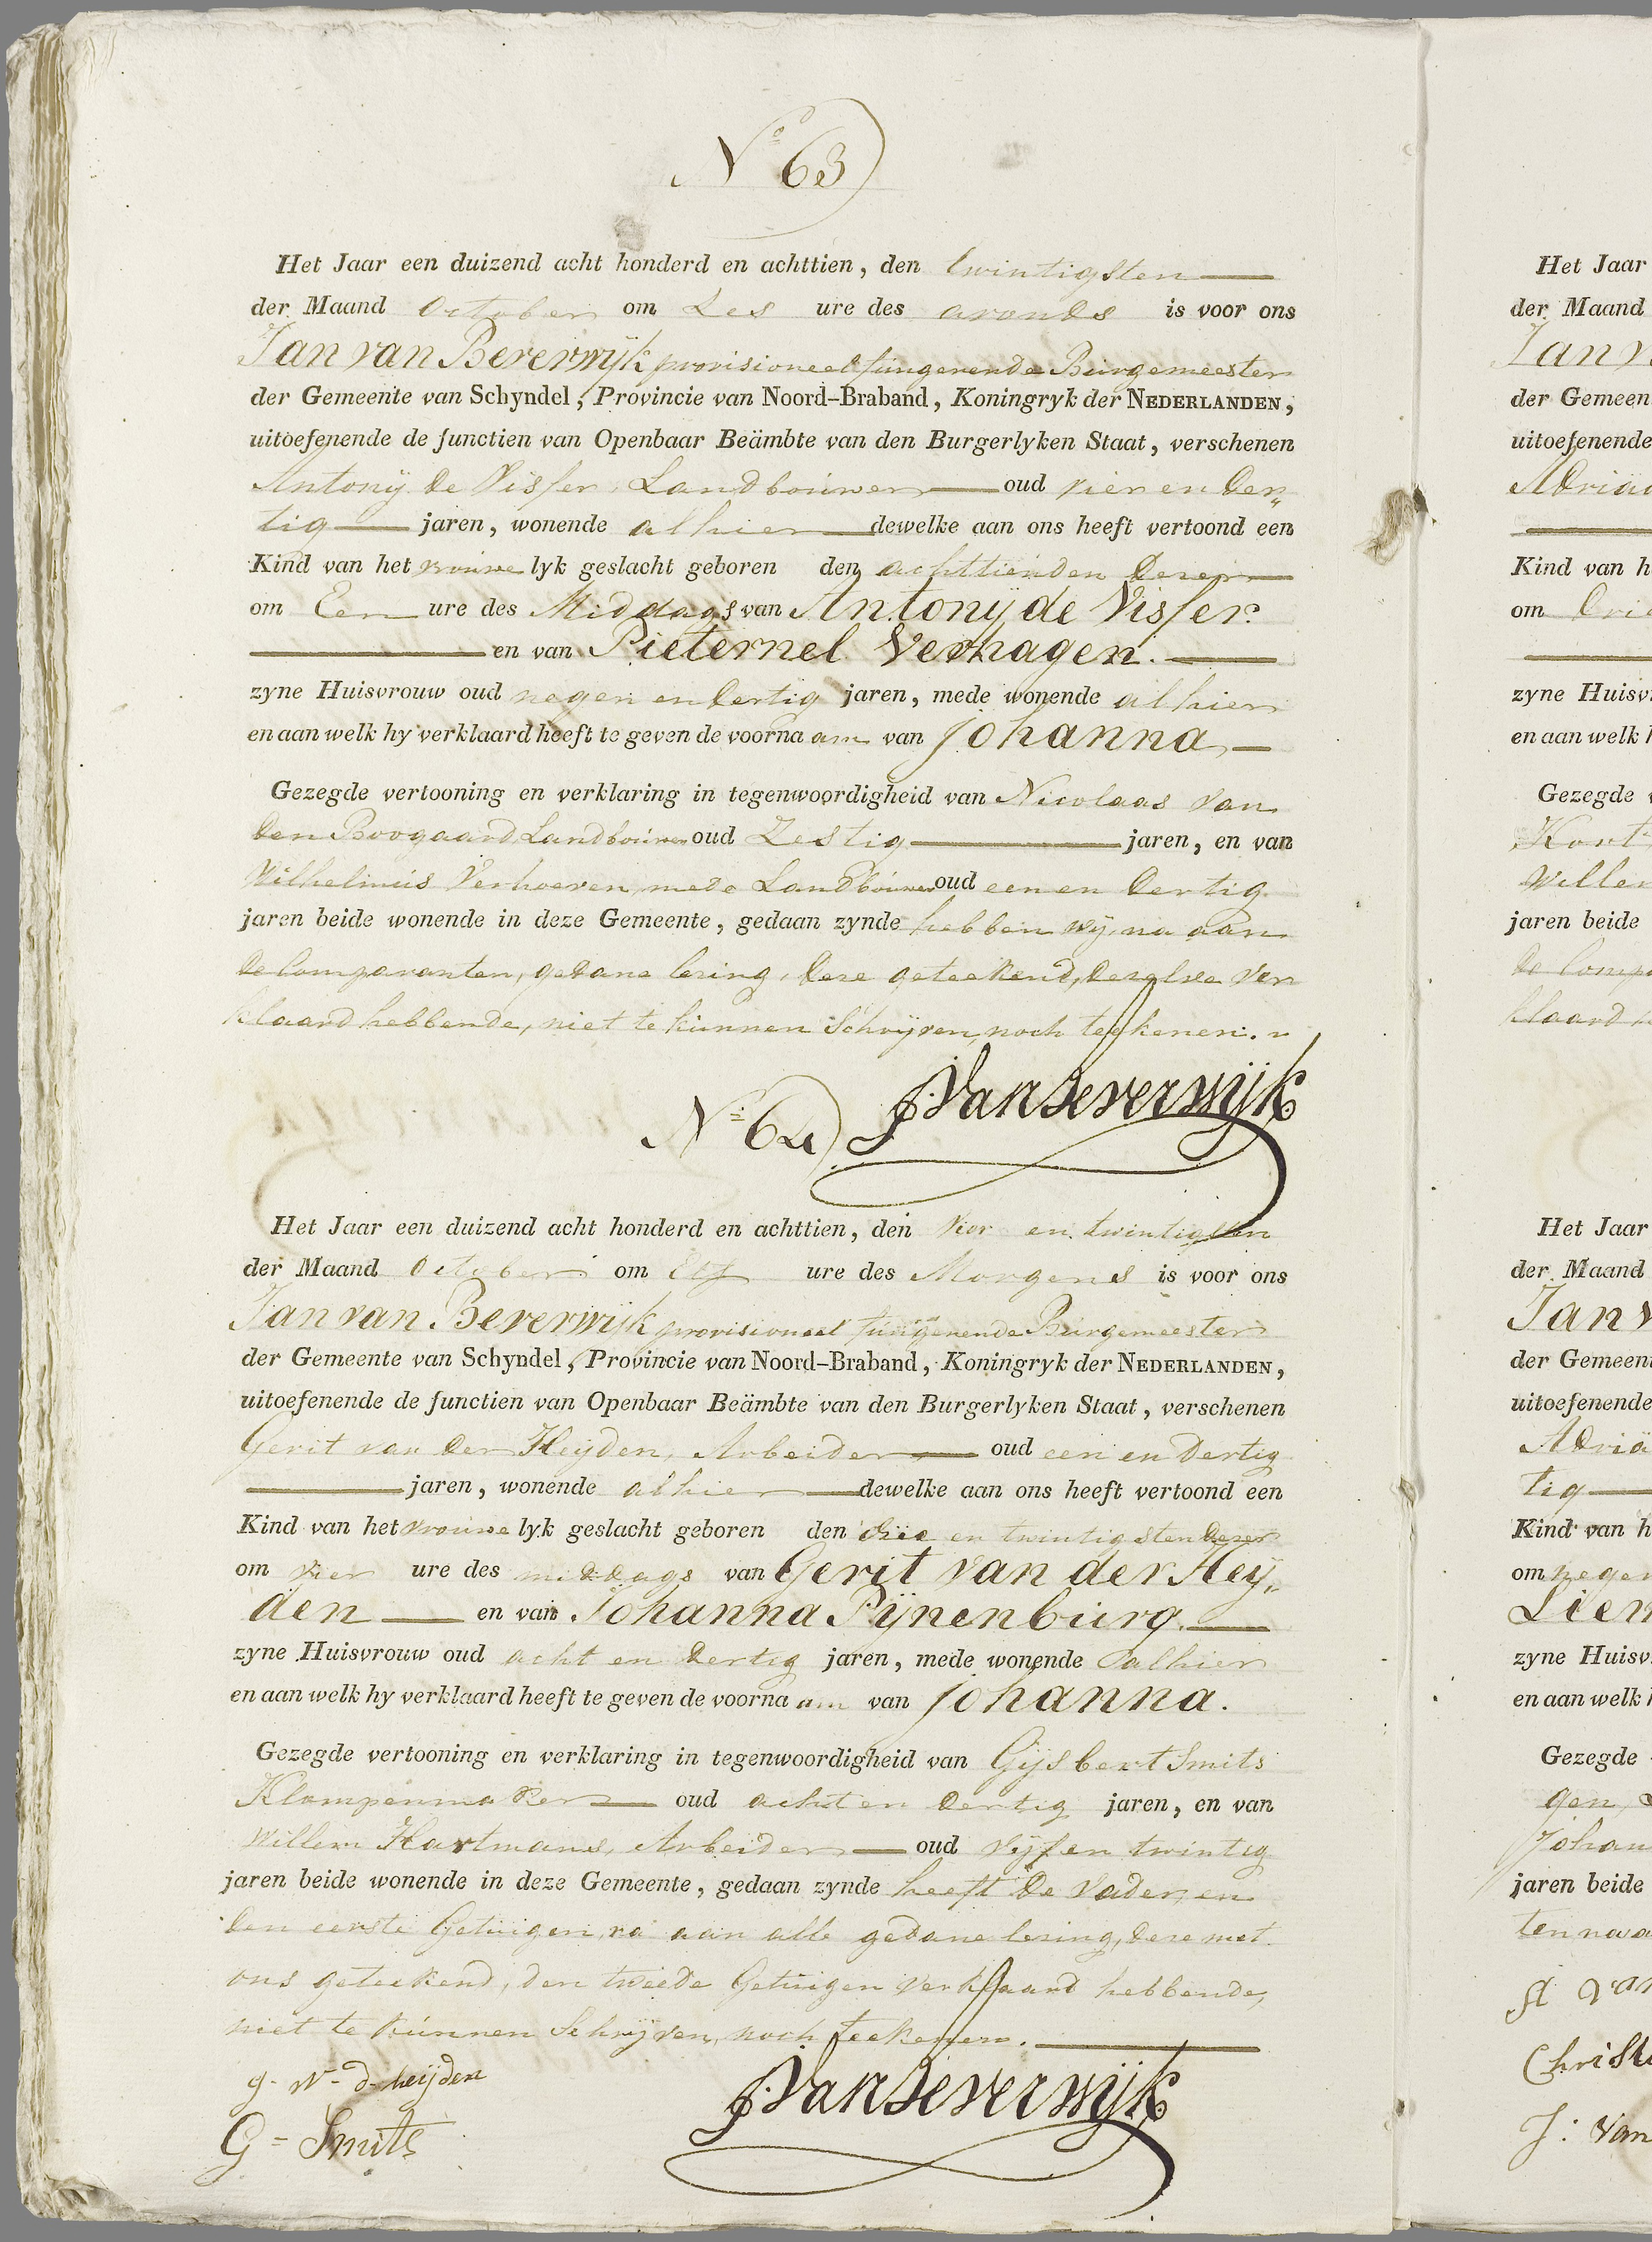 N.o 63)
Het Jaar een duizend acht honderd en achttien, den twintigsten
der Maand October om Zes ure des avonds is voor ons
Jan van Beverwijk provisioneel fungerende Burgemeester
der Gemeente van Schyndel, Provincie van Noord-Braband, Koningryk der NEDERLANDEN,
uitoefenende de functien van Openbaar Beämbte van den Burgerlyken Staat, verschenen
Antonij de Visser, Landbouwer oud vier en der„
tig jaren, wonende alhier dewelke aan ons heeft vertoond een
Kind van het vrouwe lyk geslacht geboren den achttienden dezer
om Een ure des Middags van Antonij de Visser.
en van Pieternel Verhagen.
zyne Huisvrouw oud negen en dertig jaren, mede wonende alhier
en aan welk hy verklaard heeft te geven de voorna am van Johanna,
Gezegde vertooning en verklaring in tegenwoordigheid van Nicolaas van
den Boogaard Landbouwer oud Zestig jaren, en van
Wilhelmus Verhoeven, mede Landbouwer oud een en dertig
jaren beide wonende in deze Gemeente, gedaan zynde hebben wij, na aan
de Comparanten, gedane lezing, deze geteekend, dezelve ver
klaard hebbende, niet te kunnen Schrijven, noch teekenen.
JVanBeverwijk
N.o 64)
Het Jaar een duizend acht honderd en achttien, den vier en twintigsten
der Maand October om Elf ure des Morgens is voor ons
Jan van Beverwijk provisioneel fungerende Burgemeester
der Gemeente van Schyndel, Provincie van Noord-Braband, Koningryk der NEDERLANDEN,
uitoefenende de functien van Openbaar Beämbte van den Burgerlyken Staat, verschenen
Gerit van der Heijden, Arbeider oud een en dertig
jaren, wonende alhier dewelke aan ons heeft vertoond een
Kind van het vrouwe lyk geslacht geboren den drie en twintigsten dezer
om vier ure des middags van Gerit van der Heij„
den en van Johanna Pijnenburg.
zyne Huisvrouw oud acht en dertig jaren, mede wonende alhier
en aan welk hy verklaard heeft te geven de voorna am van Johanna.
Gezegde vertooning en verklaring in tegenwoordigheid van Gijsbert Smits
Klompenmaker oud acht en dertig jaren, en van
Willem Hartmans, Arbeider oud vijf en twintig
jaren beide wonende in deze Gemeente, gedaan zynde heeft de Vader, en
den eerste Getuigen, na aan alle gedane lezing, deze met
ons geteekend, den tweede Getuigen verklaard hebbende,
niet te kunnen Schrijven, noch teekenen.
g. v. d. heijden
JVanBeverwijk
G = Smits
Het Jaar
der Maand
Jan v
der Gemeen
uitoefenende
Adriaa
Kind van h
om drie
zyne Huisv
en aan welk h
Gezegde
Kort
Willem
jaren beide
de Comp
klaard
Het Jaar
der Maand
Jan v
der Gemeen
uitoefenende
Adria
tig
Kind van h
om negen
Liem
zyne Huisv
en aan welk h
Gezegde
gen,
Johan
jaren beide
ten na a
A van
Christ
J: Van